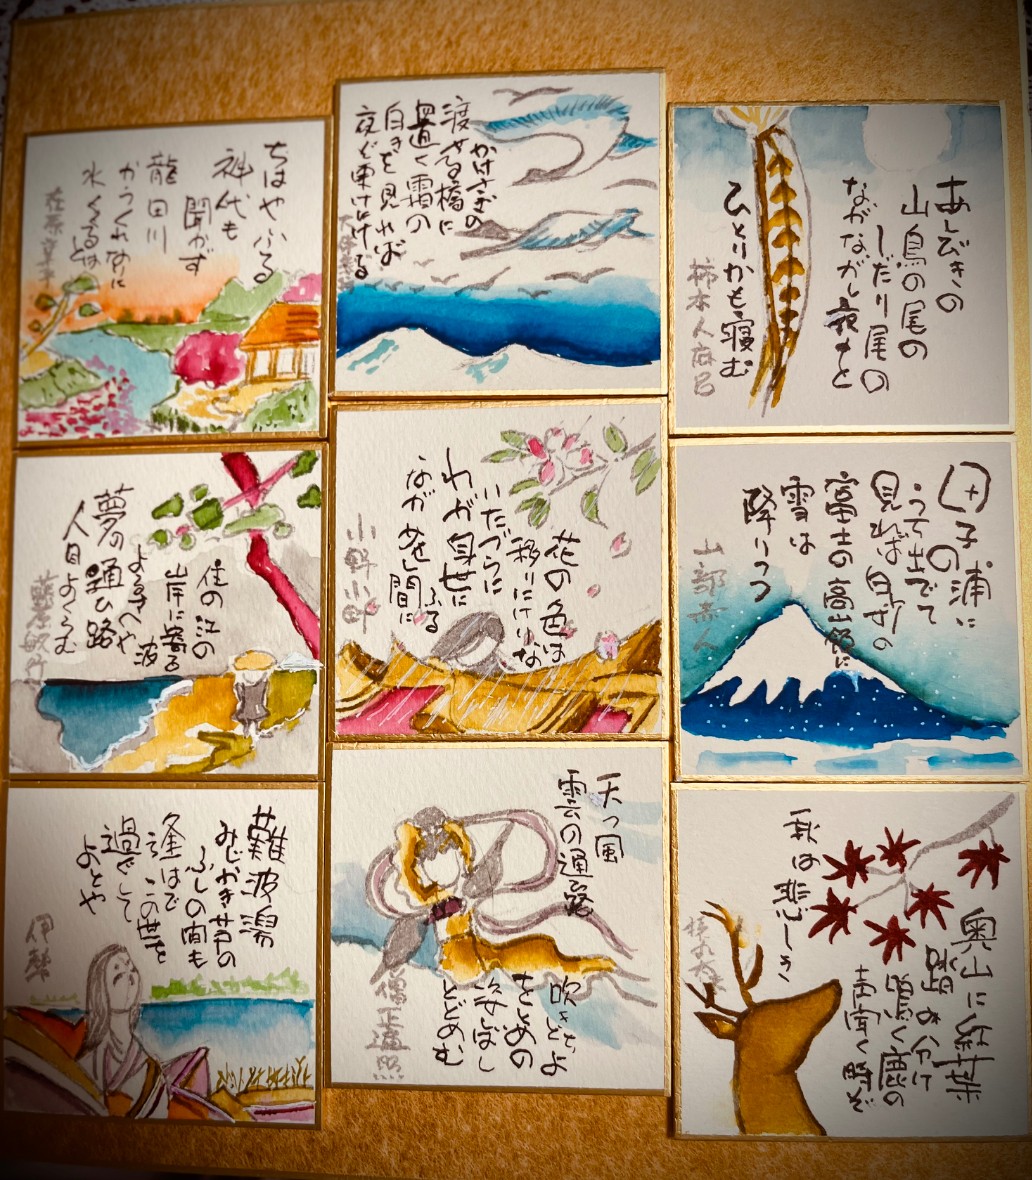 あしびきの
山鳥の尾の
しだり尾の
ながながし夜を
ひとりかも寝む
柿本人麻呂
田子の浦に
うち出でて
見れば白妙の
富士の高嶺に
雪は
降りつつ
山部赤人
奥山に紅葉
踏み分け
鳴く鹿の
声聞く時ぞ
秋は悲しき
猿丸大夫
かささぎの
渡せる橋に
置く霜の
白きを見れば
夜ぞ更けにける
大伴家持
花の色は
移りにけりな
いたづらに
わが身世に
ふる
ながめせし間に
小野小町
天つ風
雲の通ひ路
吹きとぢよ
をとめの
姿しばし
とどめむ
僧正遍照
ちはやふる
神代も
聞かず
龍田川
からくれなゐに
水くくるとは
在原業平
住の江の
岸に寄る
波
よるさへや
夢の通ひ路
人目よくらむ
藤原敏行
難波潟
みじかき芦の
ふしの間も
逢はでこの世を
過ぐして
よとや
伊勢